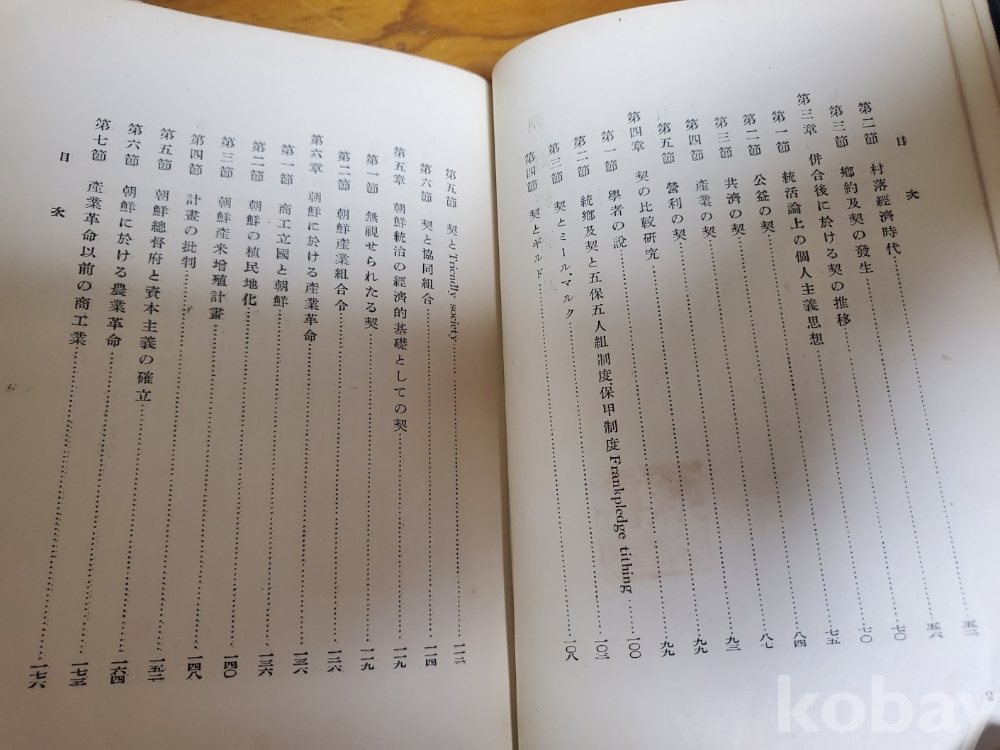 目次
第二節 村落經濟時代……五二
第三節 鄕約及契の發生……五六
第三章 併合後に於ける契の推移……七〇
第一節 統活論上の個人主義思想……七〇
第二節 公益の契……七五
第三節 共濟の契……八四
第四節 產業の契……八七
第五節 營利の契……九三
第四章 契の比較硏究……九九
第一節 學者の說……九九
第二節 統鄕及契と五保五人組制度保甲制度Frankpledge tithing……一〇〇
第三節 契とミールマルク……一〇三
第四節 契とギルド……一〇八
2
第五節 契とTriendly society……一一二
第六節 契と協同組合……一一四
第五章 朝鮮統治の經濟的基礎としての契……一一九
第一節 無視せられたる契……一一九
第二節 朝鮮產業組合令……一二六
第六章 朝鮮に於ける產業革命……一三六
第一節 商工立國と朝鮮……一三六
第二節 朝鮮の植民地化……一四〇
第三節 朝鮮產米增殖計畫……一四八
第四節 計畫の批判……一五二
第五節 朝鮮總督府と資本主義の確立……一六四
第六節 朝鮮に於ける農業革命……一七三
第七節 產業革命以前の商工業……一七六
目次
kobay